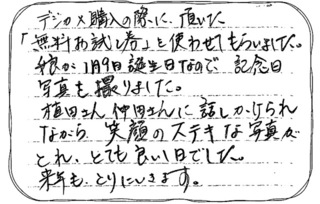 デジカメ購入の際に、頂いた
「無料お試し券」を使わせてもらいました。
娘が1月9日誕生日なので、記念日
写真も撮りました。
植田さん仲田さんに話しかけられ
ながら、笑顔のステキな写真が
とれ、とても良い1日でした。
来年も、とりにいきます。